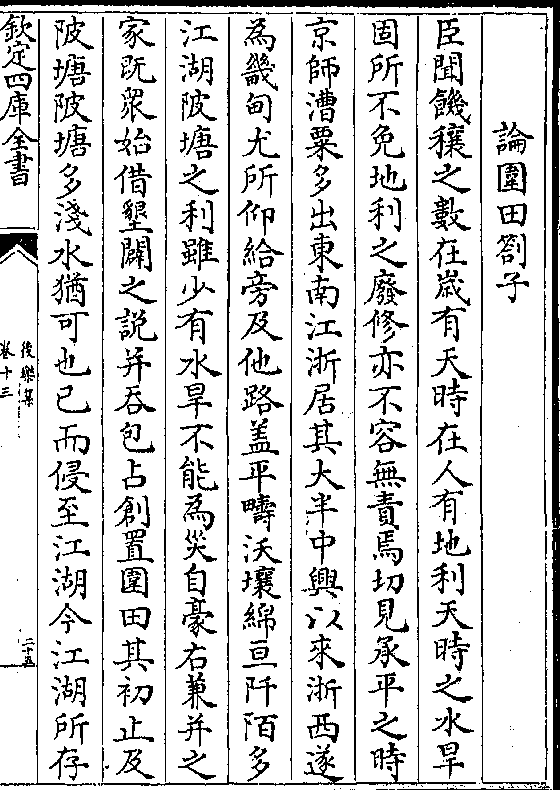 論圍田劄子
臣聞饑穰之數在歲有天時在人有地利天時之水旱
固所不免地利之廢修亦不容無責焉切見承平之時
京師漕粟多出東南江浙居其大半中興以來浙西遂
為畿甸尤所仰給旁及他路蓋平疇沃壤綿亘阡陌多
江湖陂塘之利雖少有水旱不能為災自豪右兼并之
家既衆始借墾闢之說并吞包占創置圍田其初止及
陂塘陂塘多淺水猶可也已而侵至江湖今江湖所存
欽定四庫全書
後樂集
卷十三
二十五